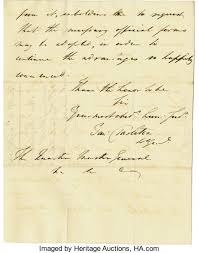 from it, emboldens me to request,
that the necessary official forms
may be adopted, in order to
continue the advantages so happily
commenced.
I have the honor to be
Sir
Your most obedt. hum
The Quarter Master General
Imaged by Heritage Auctions, HA.com